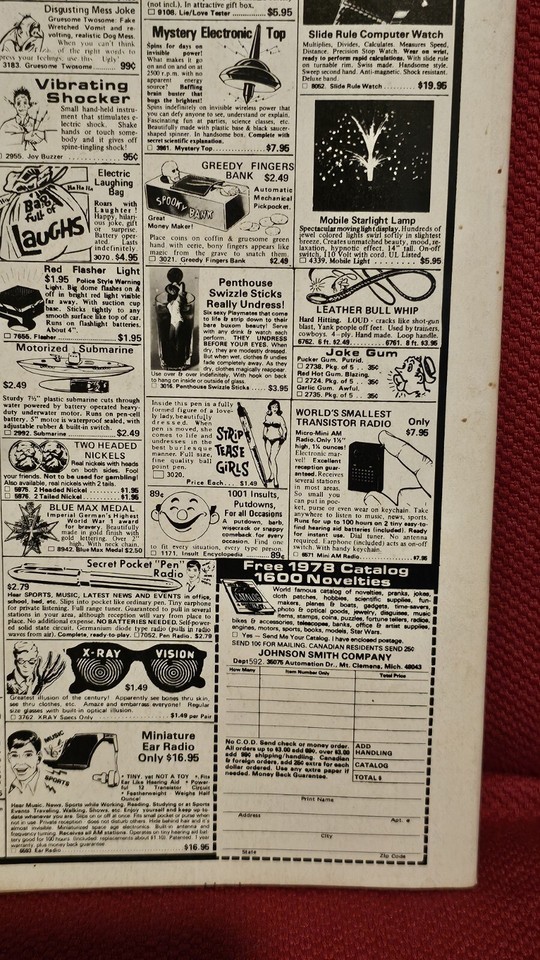 Disgusting Mess Joke
Gruesome Twosome: Fake
Wretched Vomit and re-
volting, realistic Dog Mess.
When you can't think
of the right words to
press your feelings, use this. Ugly
3183. Gruesome Twosome 99¢
Vibrating
Shocker
Small hand-held instru-
ment that stimulates e-
lectric shock. Shake
hands or touch some-
body and it gives off
spine-tingling shock!
2955. Joy Buzzer 95¢
Electric
Laughing
Bag
Ha Ha Ha
Bag
Full of
Laughs
Roars with
Laughter!
Happy, hilari-
ous joke, gift
or surprise.
Battery oper-
ated. Lasts
indefinitely.
3070. $4.95
Red Flasher Light
$1.95 Police Style Warning
Light. Big dome flashes on &
off in bright red light visible
far away. With suction cup
base. Sticks tightly to any
smooth surface like top of car.
Runs on flashlight batteries.
About 4".
7655. Flasher $1.95
Motorized Submarine
$2.49
Sturdy 7½" plastic submarine cuts through
water powered by battery operated heavy-
duty underwater motor. Runs on pen-cell
battery. 5" motor is waterproof sealed, with
adjustable rubber & built-in switch.
2992. Submarine $2.49
TWO HEADED
NICKELS
Real nickels with heads
on both sides. Fool
your friends. Not to be used for gambling!
Also available, real nickels with 2 tails.
5875. 2 Headed Nickel $1.95
5876. 2 Tailed Nickel $1.95
BLUE MAX MEDAL
Imperial German's Highest
World War 1 award
for bravery. Beautifully
made in gold finish with
gold lettering. Over 2"
high. With neck chain.
8942. Blue Max Medal $2.50
Secret Pocket "Pen"
Radio
$2.79
Hear SPORTS, MUSIC, LATEST NEWS AND EVENTS in office,
school, bed, etc. Slips into pocket like ordinary pen. Tiny earphone
for private listening. Full range tuner. Guaranteed to pull in several
stations in your area, although reception will vary from place to
place. No additional expense. NO BATTERIES NEEDED. Self-power-
ed solid state circuit. Germanium diode type radio (pulls in radio
waves from air). Complete, ready-to-play. 7052. Pen Radio. $2.79
X-RAY VISION
$1.49
Greatest illusion of the century! Apparently see bones thru skin,
see thru clothes, etc. Amaze and embarrass everyone! Regular
size glasses with built-in optical illusion.
3762. XRAY Specs Only $1.49 per Pair
MUSIC
SPORTS
Miniature
Ear Radio
Only $16.95
• TINY, yet NOT A TOY • Fits
Ear Like Hearing Aid • Power-
ful 12 Transistor Circuit
• Featherweight Weighs Half
Ounce!
Hear Music, News, Sports while Working, Reading, Studying or at Sports
Events Traveling, Walking, Shows, etc. Enjoy yourself and keep up-to-
date whenever you are. Slips on or off at once. Fits small pocket or purse when
not in use. Private reception does not disturb others. Hide behind hair and it's
almost invisible.
6693. Ear Radio $16.95
(not incl.). In attractive gift box.
9108. Lie/Love Tester $5.95
Mystery Electronic Top
Spins for days on
invisible power!
What makes it go
on and on and on at
2500 r.p.m. with no
apparent energy
source? Baffling
brain buster that
bugs the brightest!
Spins indefinitely on invisible wireless power that
you can defy anyone to see, understand or explain.
Fascinating fun at parties, science classes, etc.
Beautifully made with plastic base & black saucer-
shaped spinner. In handsome box. Complete with
secret scientific explanation.
3981. Mystery Top $7.95
GREEDY FINGERS
BANK $2.49
Automatic
Mechanical
Pickpocket.
SPOOKY BANK
Great
Money Maker!
Place coins on coffin & gruesome green
hand with eerie, bony fingers appears like
magic from the grave to snatch them.
3021. Greedy Fingers Bank $2.49
Penthouse
Swizzle Sticks
Really Undress!
Six sexy Playmates that come
to life & strip down to their
bare buxom beauty! Serve
with any drink & watch each
perform. THEY UNDRESS
BEFORE YOUR EYES. When
dry, they are modestly dressed.
But when wet, clothes & undies
fade completely away. As they
dry, clothes magically reappear.
Use over & over indefinitely. With hook on back
to hang on inside or outside of glass.
3016. Penthouse Swizzle Sticks $3.95
Inside this pen is a fully
formed figure of a love-
ly lady, beautifully
dressed. When
pen is moved, she
comes to life and
undresses in the
best burlesque
manner. Full size,
fine quality ball
point pen.
3020.
Price Each $1.49
STRIP
TEASE
GIRLS
89¢
1001 Insults,
Putdowns,
For all Occasions
A putdown, barb,
wisecrack or snappy
comeback for every
occasion. Find one
to fit every situation, every type person.
1171. Insult Encyclopedia 89¢
Slide Rule Computer Watch
Multiplies, Divides, Calculates. Measures Speed,
Distance. Precision Stop Watch. Wear on wrist,
ready to perform rapid calculations. With slide rule
on turnable rim. Swiss made. Handsome style.
Sweep second hand. Anti-magnetic. Shock resistant.
Deluxe band.
8052. Slide Rule Watch $19.95
Mobile Starlight Lamp
Spectacular moving light display. Hundreds of
jewel colored lights swirl softly in slightest
breeze. Creates unmatched beauty, mood, re-
laxation, hypnotic effect. 14" tall. On-off
switch, 110 Volt with cord. UL Listed.
4339. Mobile Light $5.95
LEATHER BULL WHIP
Hard Hitting. LOUD - cracks like shot-gun
blast. Yank people off feet. Used by trainers,
cowboys. 4-ply. Hand made. Loop handle.
6762. 6 ft. $2.49 6761. 8 ft. $3.95
Joke Gum
Pucker Gum. Putrid.
2738. Pkg. of 5 35¢
Red Hot Gum. Blazing.
2724. Pkg. of 5 35¢
Garlic Gum. Awful.
2735. Pkg. of 5 35¢
WORLD'S SMALLEST
TRANSISTOR RADIO Only
$7.95
Micro-Mini AM
Radio. Only 1½"
high, 1¼ ounces!
Electronic mar-
vel! Excellent
reception guar-
anteed. Receives
several stations
in most areas.
So small you
can put in pock-
et, purse or even wear on keychain. Take
anywhere to listen to music, news, sports.
Runs for up to 100 hours on 2 tiny easy-to-
find hearing aid batteries (included). Ready
for instant use. Dial tuner. No antenna
required. Earphone (included) acts as on-off
switch. With handy keychain.
6671 Mini AM Radio $7.95
Free 1978 Catalog
1600 Novelties
World famous catalog of novelties, pranks, jokes,
cloth patches, hobbies, scientific supplies, fun-
makers, planes & boats, gadgets, time-savers,
photo & optical goods, jewelry, disguises, music
items, stamps, coins, puzzles, fortune tellers, radios,
bikes & accessories, telescopes, banks, office & artist supplies,
engines, motors, sports, books, models, Star Wars.
Yes — Send Me Your Catalog. I have enclosed postage.
SEND 10¢ FOR MAILING. CANADIAN RESIDENTS SEND 25¢
JOHNSON SMITH COMPANY
Dept 592. 35075 Automation Dr., Mt. Clemens, Mich. 48043
How Many Item Number Only Total Price
No C.O.D. Send check or money order.
All orders up to $3.00 add 60¢, over $3.00
add 90¢ shipping/handling. Canadian
& foreign orders, add 25¢ extra for each
dollar ordered. Use any extra paper if
needed. Money Back Guarantee.
ADD
HANDLING
CATALOG
TOTAL $
Print Name
Address Apt. #
City
State Zip Code